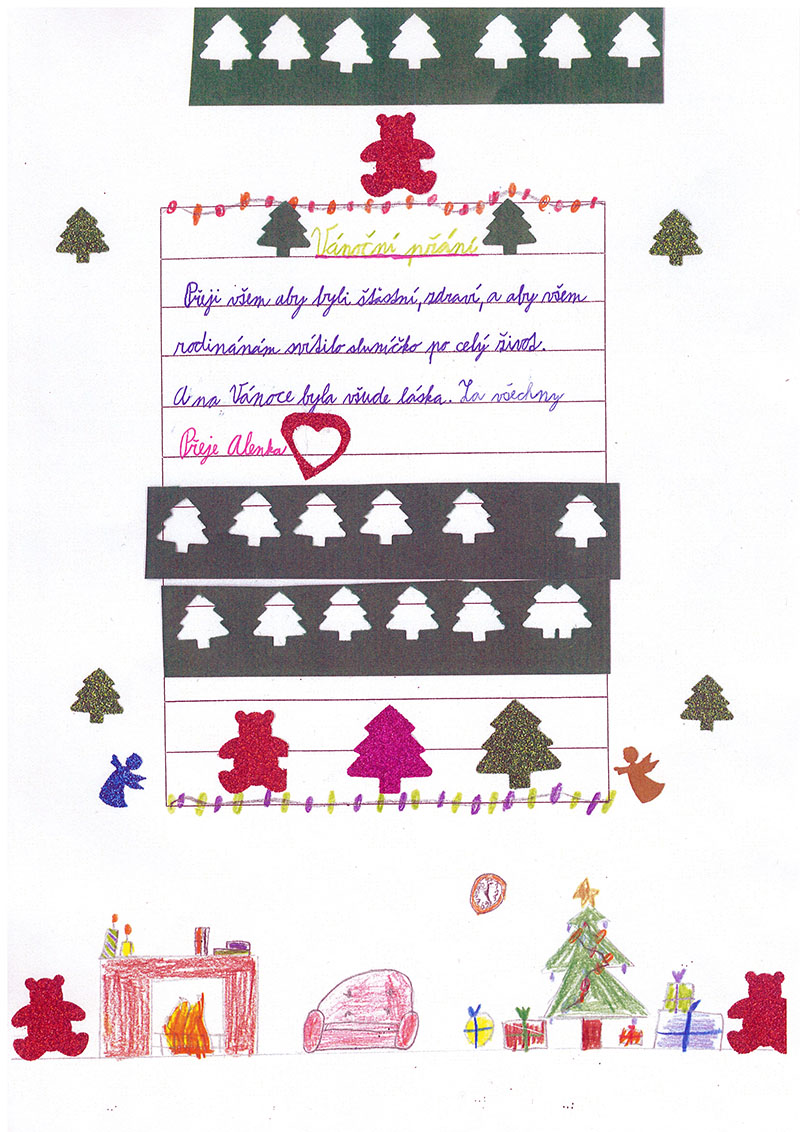 Vánoční přání
Přeji všem aby byli šťastní, zdraví, a aby všem
rodinánám svítilo sluníčko po celý život.
A na Vánoce byla všude láska. Za všechny
Přeje Alenka